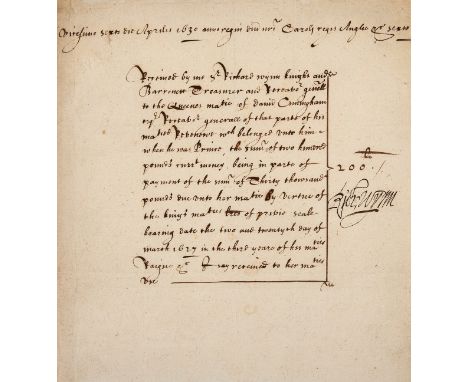 Vicesimo sexto die Aprilis 1630 anno regni dni nri Caroli regis Anglie &c sexto
Received by me Sr Richard Wynn knight and
Barronett Treasurer and Receavor genrll
to the Queenes matie of David Cuningham
esqr Receavor generall of that parte of his
maties Revenewe wch belonged unto him
when he was Prince the sum of two hundred
pounds curr money, being in parte of
payment of the sum of Thirty thousand
pounds due unto her matie by vertue of
the kings maties lres of privie seale
bearing date the two and twentyth day of
march 1627 in the third yeare of his maties
Raigne &c I say received to her maties
use
li
200 /
Ric: Wynn